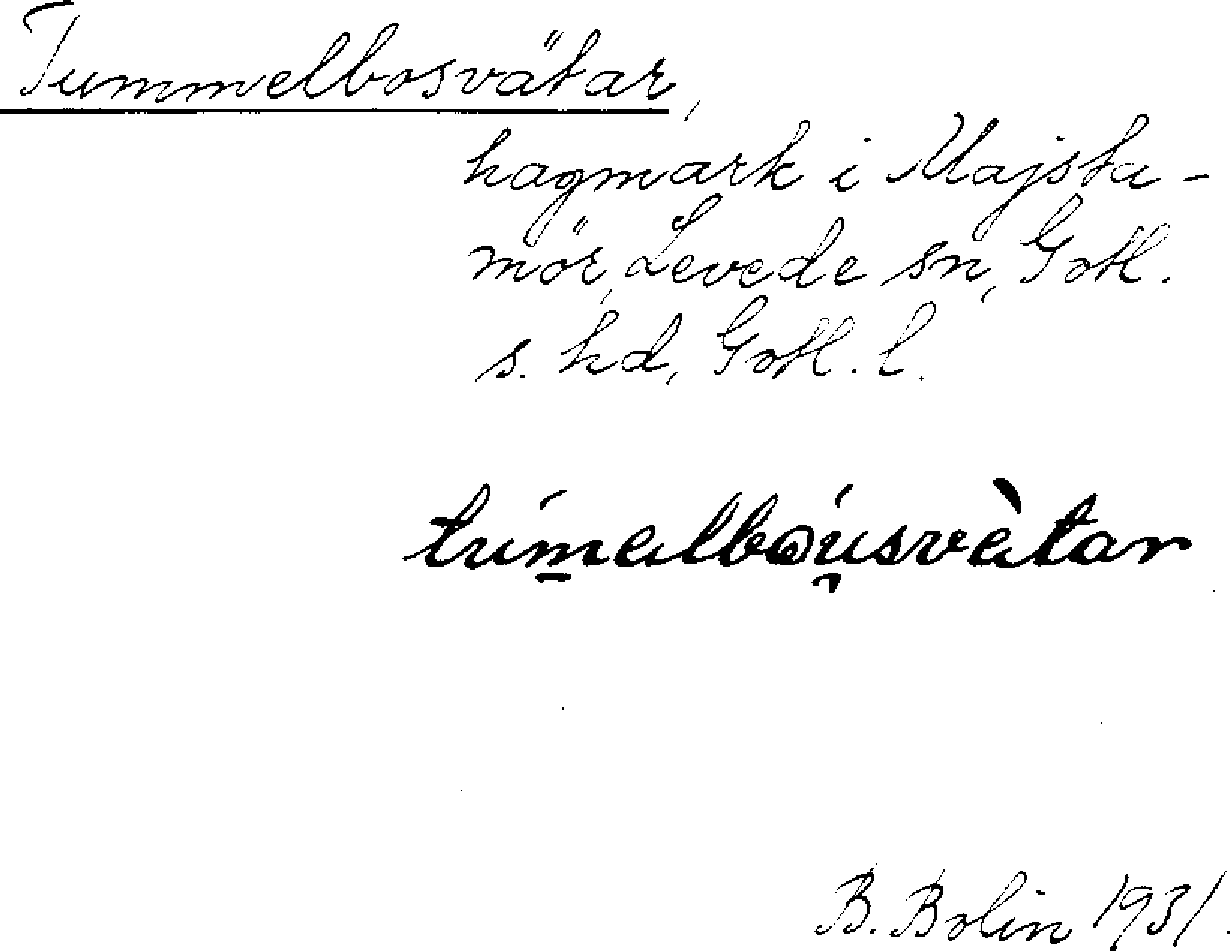 Tummelbosvätar,
hagmark i Majsta-
mör, Levede sn, Gotl.
s. hd, Gotl. l.
túmalbóusvàtar
B. Bolin 1931.